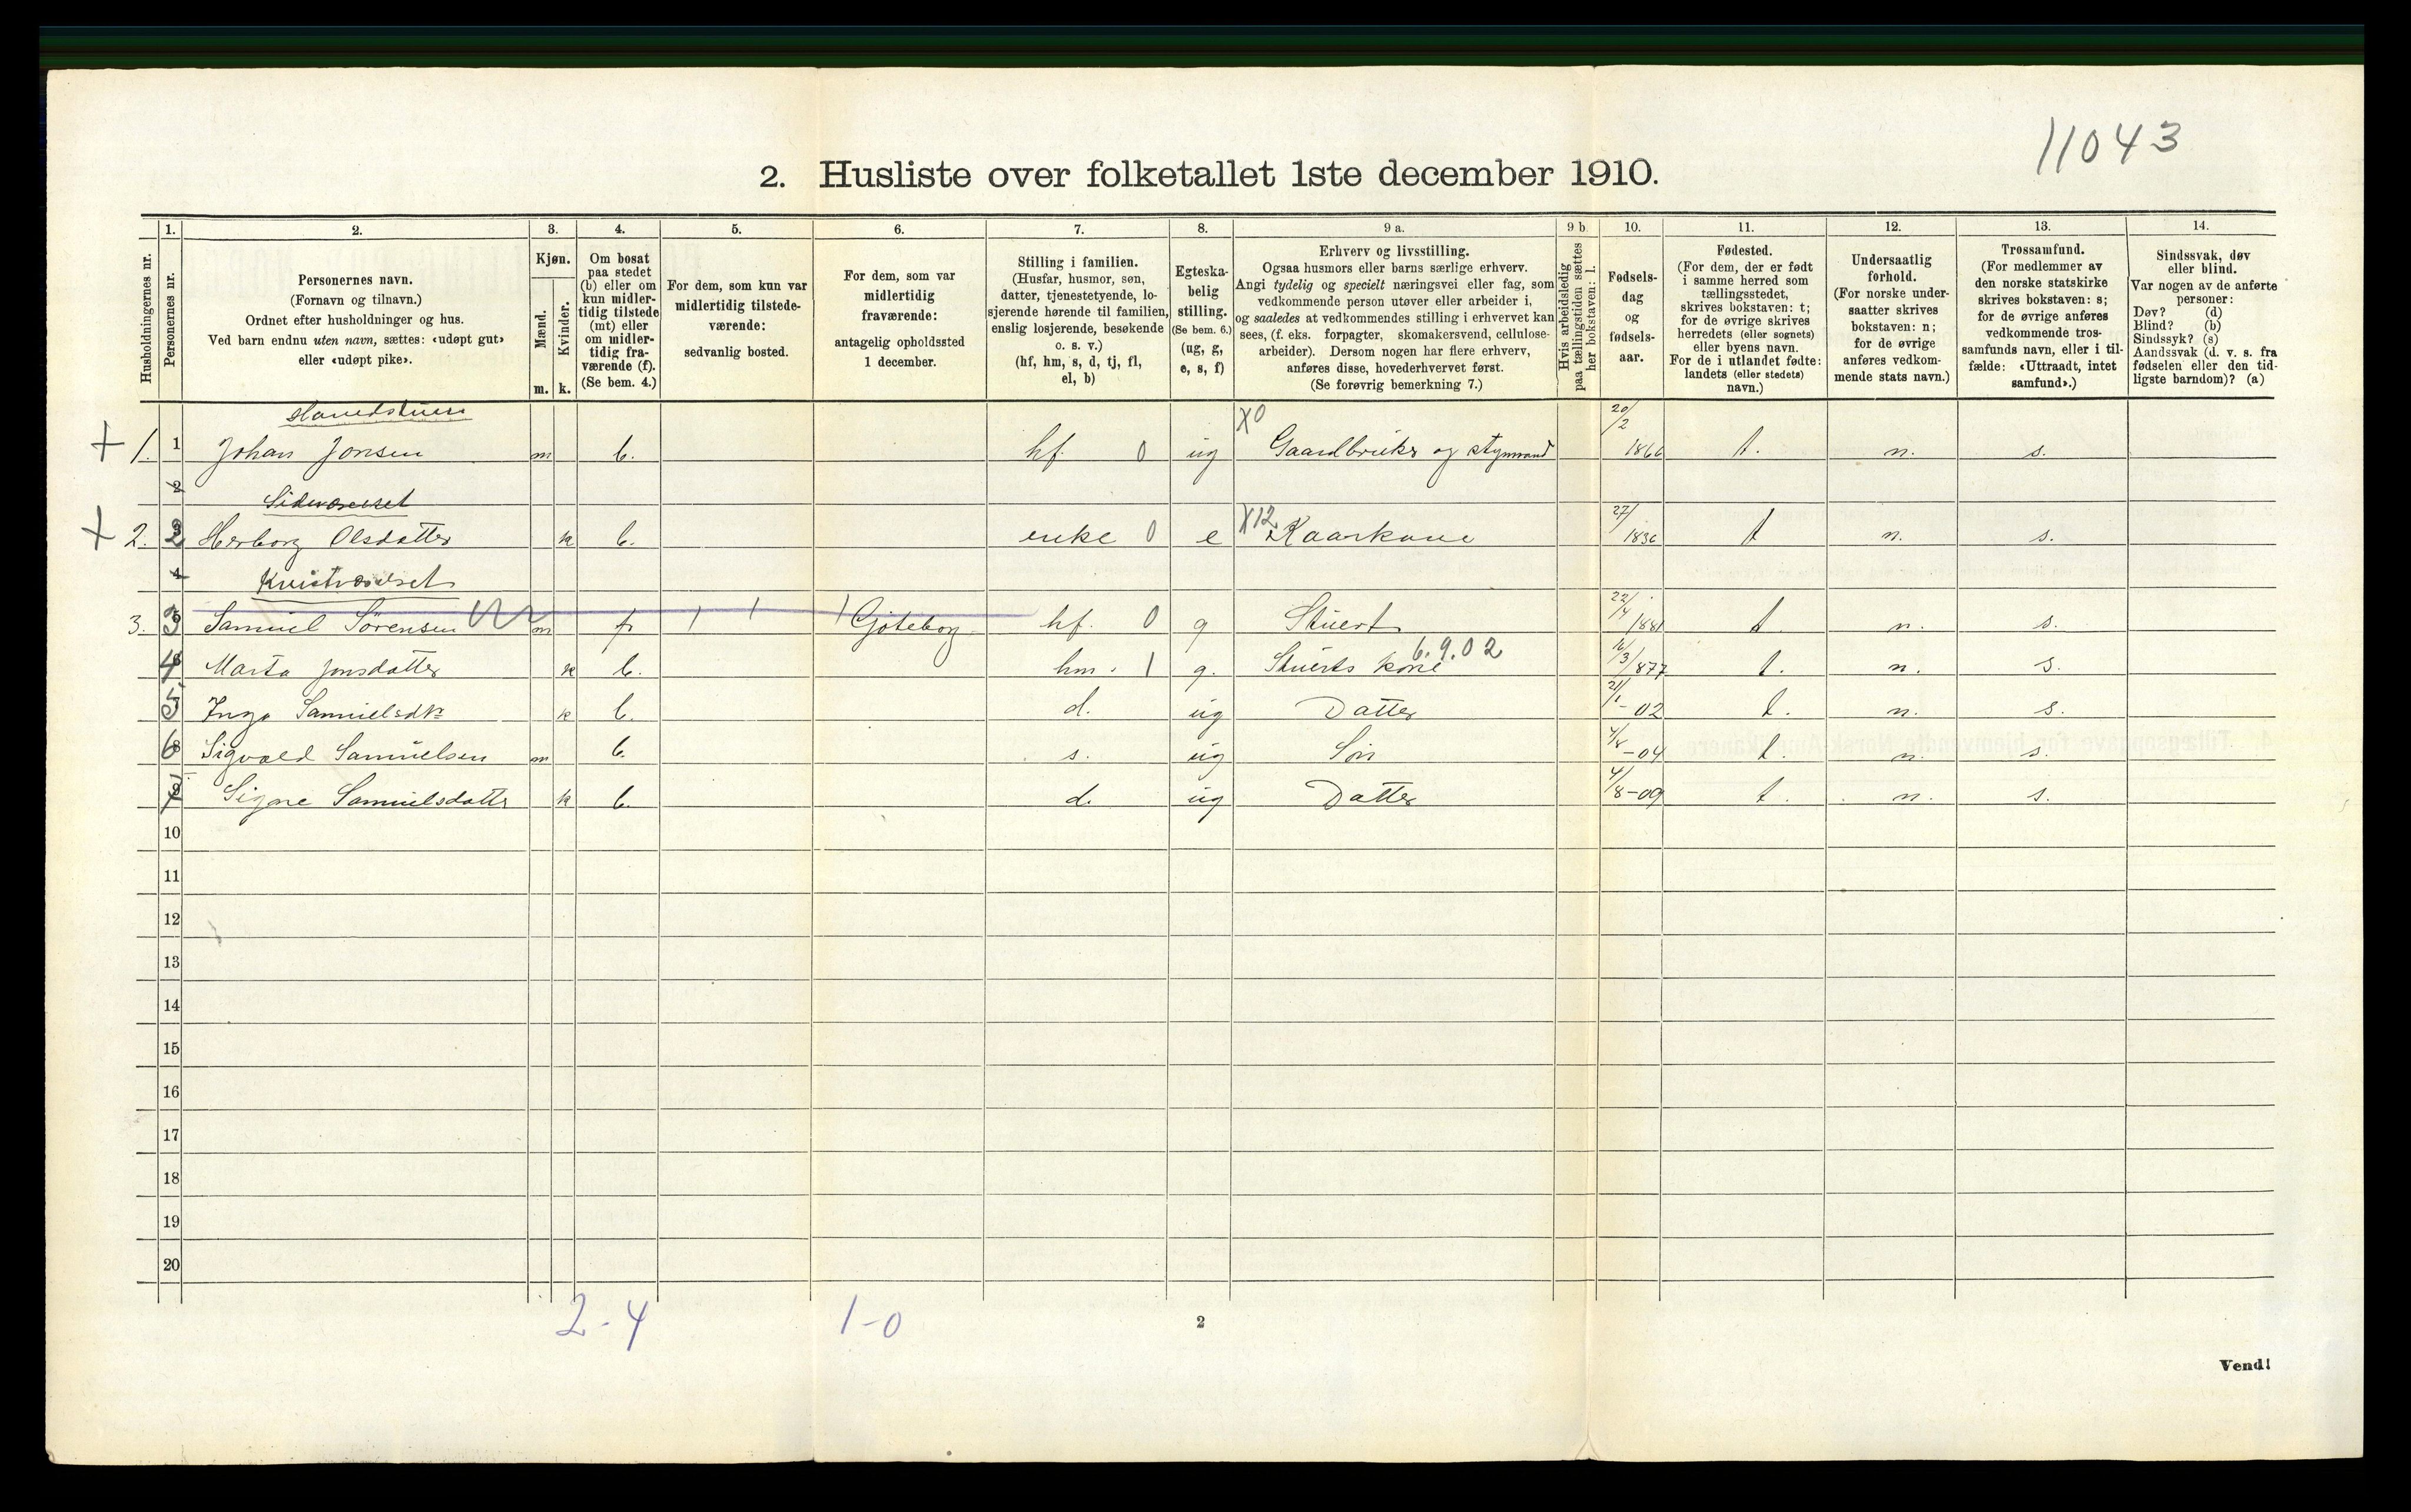 11043
2. Husliste over folketallet 1ste december 1910.
Husholdningernes nr.
1. 2. 3. 4. 5. 6. 7. 8. 9 a. 9 b. 10. 11. 12. 13. 14.
Personernes nr.
Personernes navn.
(Fornavn og tilnavn.)
Ordnet efter husholdninger og hus.
Ved barn endnu uten navn, sættes: «udøpt gut»
eller «udøpt pike».
Kjøn.
Mænd.
m.
Kvinder.
k.
Om bosat
paa stedet
(b) eller om
kun midler-
tidig tilstede
(mt) eller
om midler-
tidig fra-
værende (f).
(Se bem. 4.)
For dem, som kun var
midlertidig tilstede-
værende:
sedvanlig bosted.
For dem, som var
midlertidig
fraværende:
antagelig opholdssted
1 december.
Stilling i familien.
(Husfar, husmor, søn,
datter, tjenestetyende, lo-
sjerende hørende til familien,
enslig losjerende, besøkende
o. s. v.)
(hf, hm, s, d, tj, fl,
el, b)
Egteska-
belig
stilling.
(Se bem. 6.)
(ug, g,
e, s, f)
Erhverv og livsstilling.
Ogsaa husmors eller barns særlige erhverv.
Angi tydelig og specielt næringsvei eller fag, som
vedkommende person utøver eller arbeider i,
og saaledes at vedkommendes stilling i erhvervet kan
sees, (f. eks. forpagter, skomakersvend, cellulose-
arbeider). Dersom nogen har flere erhverv,
anføres disse, hovederhvervet først.
(Se forøvrig bemerkning 7.)
Hvis arbeidsledig
paa tællingstiden sættes
her bokstaven: l.
Fødsels-
dag
og
fødsels-
aar.
Fødested.
(For dem, der er født
i samme herred som
tællingsstedet,
skrives bokstaven: t;
for de øvrige skrives
herredets (eller sognets)
eller byens navn.
For de i utlandet fødte:
landets (eller stedets)
navn.)
Undersaatlig
forhold.
(For norske under-
saatter skrives
bokstaven: n;
for de øvrige
anføres vedkom-
mende stats navn.)
Trossamfund.
(For medlemmer av
den norske statskirke
skrives bokstaven: s;
for de øvrige anføres
vedkommende tros-
samfunds navn, eller i til-
fælde: «Uttraadt, intet
samfund».)
Sindssvak, døv
eller blind.
Var nogen av de anførte
personer:
Døv? (d)
Blind? (b)
Sindssyk? (s)
Aandssvak (d. v. s. fra
fødselen eller den tid-
ligste barndom)? (a)
+ 1. 1 Johan Jonsen m b. hf. 0 ug X0 Gaardbruker og styrmand 20/2 1866 t. n. s.
2 Sideværelset
+ 2. 2 Herborg Olsdatter k b. enke 0 e X12 Kaarkone 27/ 1836 t n. s.
4 Kvistværelset
3. 3 Samuel Sørensen m f Gøteborg hf. 0 g Stuert 22/4 1881 t. n. s.
4 Marta Jonsdatter k b. hm. 1 g. Stuerts kone 6.9.02 16/3 1877 t. n. s.
5 Inga Samuelsdtr k b. d. ug Datter 21/1 -02 t. n. s.
6 Sigvald Samuelsen m b. s. ug Søn -04 t. n. s.
7 Signe Samuelsdatter k b. d. ug Datter 4/8-09 t. n. s.
10
11
12
13
14
15
16
17
18
19
20
2-4 1-0
2
Vend!